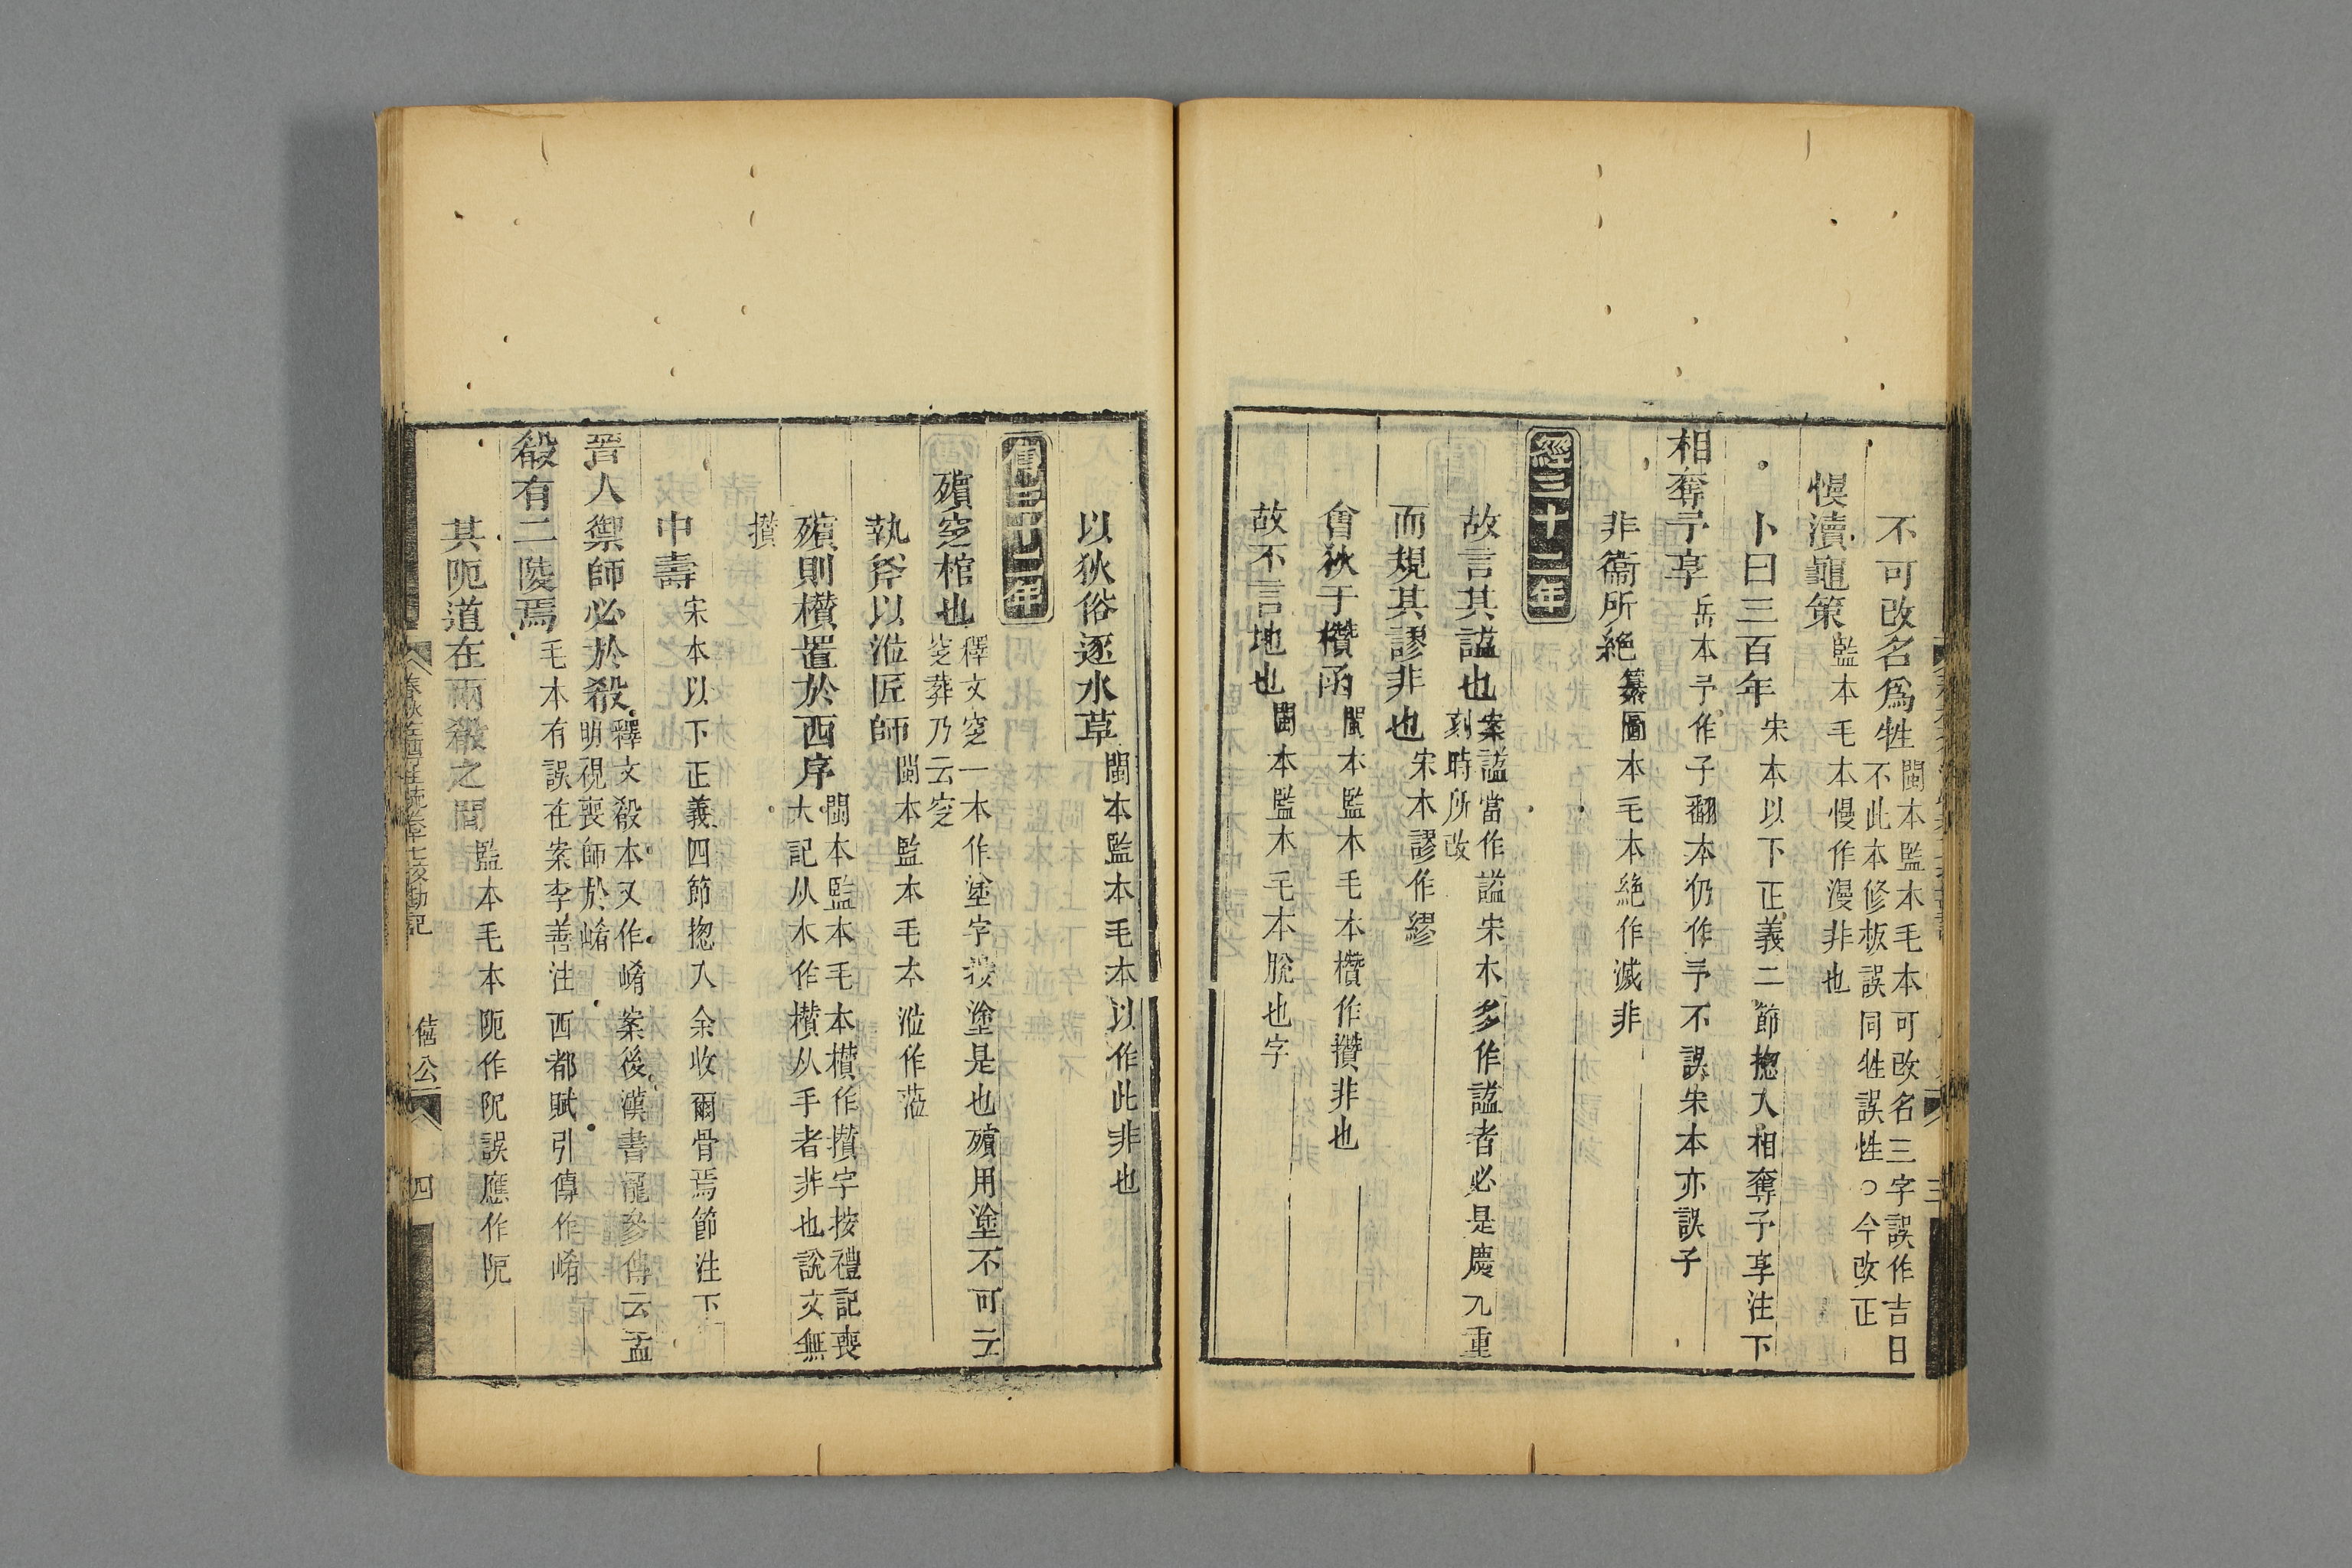 不可改名爲牲閩本監本毛本可改名三字誤作吉日不此本修板誤同牲誤性○今改正
慢瀆龜策監本毛本慢作漫非也
卜曰三百年宋本以下正義二節揔入相奪予享注下
相奪予享岳本予作子翻本仍作予不誤宋本亦誤子
非衞所絶纂圖本毛本絶作滅非
經三十二年
故言其諡也案諡當作謚宋本多作諡諡者必是慶元重刻時所改
而規其謬非也宋本謬作繆
會狄于欑函閩本監本毛本欑作攢非也
故不言地也閩本監本毛本脫也字
三
以狄俗逐水草閩本監本毛本以作此非也
傳三十二年
殯窆棺也釋文窆一本作塗字按塗是也殯用塗不可云窆葬乃云窆
執斧以涖匠師閩本監本毛本涖作蒞
殯則欑置於西序閩本監本毛本欑作攢字按禮記喪大記从木作欑从手者非也說文無攢
中壽宋本以下正義四節揔入余收爾骨焉節注下
晉人禦師必於殽釋文殽本又作崤案後漢書龐參傳云孟明視喪師於崤
殽有二陵焉毛本有誤在案李善注西都賦引傳作崤
其阨道在兩殽之間監本毛本阨作阸誤應作阨
春秋左傳注疏卷十七校勘記
僖公
四